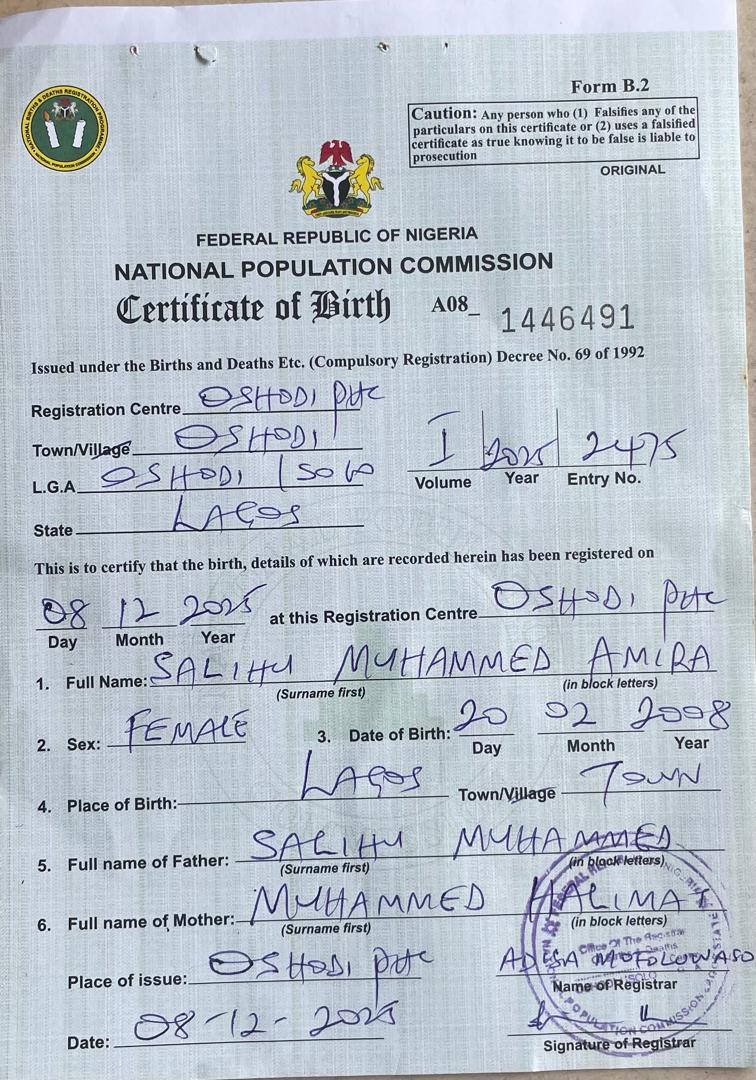 NATIONAL BIRTHS & DEATHS REGISTRATION PROGRAMME
NATIONAL POPULATION COMMISSION
Form B.2
Caution: Any person who (1) Falsifies any of the
particulars on this certificate or (2) uses a falsified
certificate as true knowing it to be false is liable to
prosecution
ORIGINAL
FEDERAL REPUBLIC OF NIGERIA
NATIONAL POPULATION COMMISSION
Certificate of Birth A08_ 1446491
Issued under the Births and Deaths Etc. (Compulsory Registration) Decree No. 69 of 1992
Registration Centre OSHODI PHC
Town/Village OSHODI
L.G.A OSHODI / ISOLO
I 2025 2475
Volume Year Entry No.
State LAGOS
This is to certify that the birth, details of which are recorded herein has been registered on
08 12 2025 at this Registration Centre OSHODI PHC
Day Month Year
1. Full Name: SALIHU MUHAMMED AMIRA
(Surname first) (in block letters)
2. Sex: FEMALE 3. Date of Birth: 20 02 2008
Day Month Year
4. Place of Birth: LAGOS Town/Village TOWN
5. Full name of Father: SALIHU MUHAMMED
(Surname first) (in block letters)
6. Full name of Mother: MUHAMMED HALIMA
(Surname first) (in block letters)
Office Of The Registrar
Place of issue: OSHODI PHC
Name of Registrar
POPULATION COMMISSION
Date: 08-12-2025
Signature of Registrar